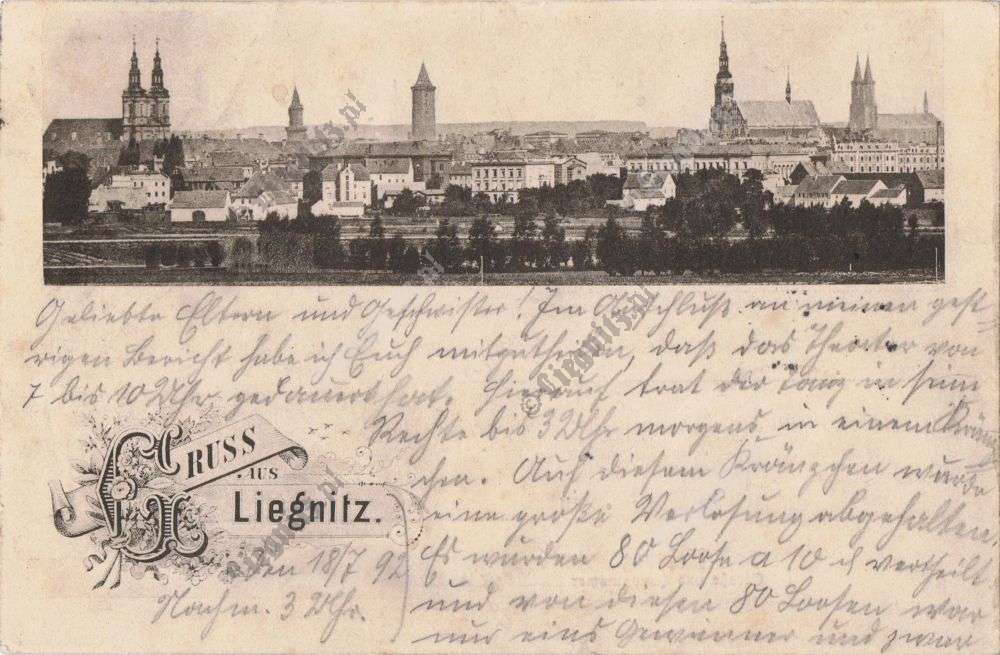 Geliebte Eltern und Geschwister! Im Anschluß an meinen gest
rigen Bericht habe ich Euch mitzutheilen, daß das Theater von
7 bis 10 Uhr gedauert hat. Hierauf trat der Tanz in sein
Rechte bis 3 Uhr morgens in einem Kränz
chen. Auf diesem Kränzchen wurde
eine große Verlosung abgehalten,
Es wurden 80 Loose a 10 vertheilt
und von diesen 80 Loosen war
nur eins Gewinner und zwar
GRUSS
AUS
Liegnitz.
den 18/7 92
Nachm. 3 Uhr.
© Liegnitz.pl